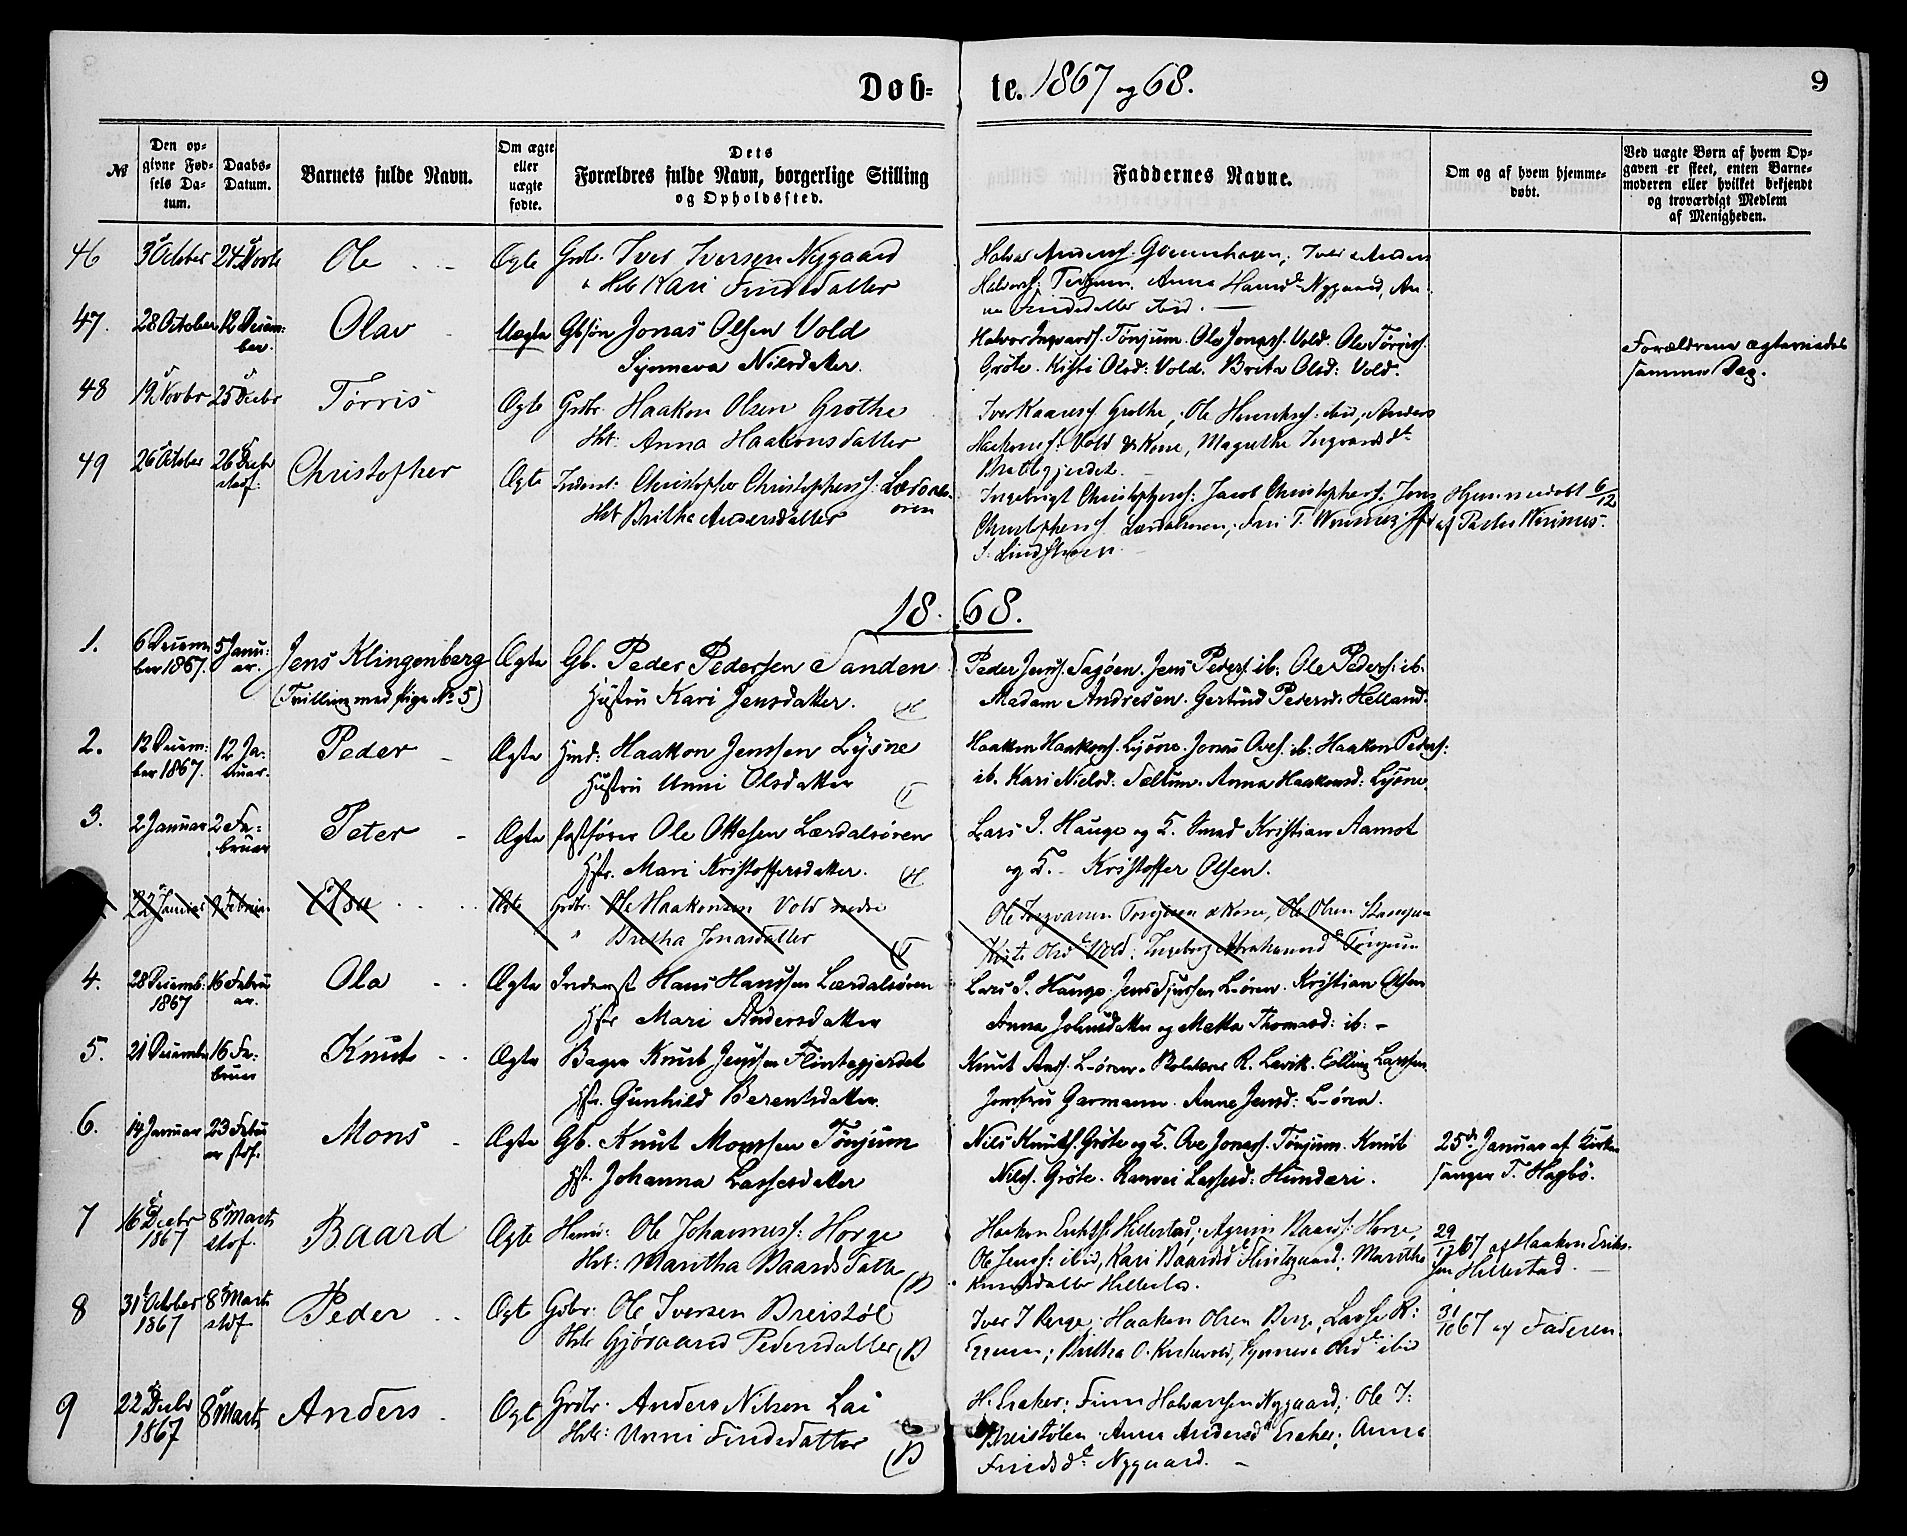 Døb= te. 1867 og 68.
9
№
Den op=
givne Fød=
sels Da=
tum.
Daabs=
Datum.
Barnets fulde Navn.
Om ægte
eller
uægte
fødte.
Dets
Forældres fulde Navn, borgerlige Stilling
og Opholdssted.
Faddernes Navne.
Om og af hvem hjemme=
døbt.
Ved uægte Børn af hvem Op=
gaven er skeet, enten Barne=
moderen eller hvilket bekjendt
og troværdigt Medlem
af Menigheden.
46 3 October 24 Novb Ole Ægte Grdbr. Iver Iversen Nygaard
Kari Findsdatter
Anna Nygaard, An-
na Findsdatter ibid.
47. 28 October 12 Decem=
ber. Olav Uægte Gbsøn Jonas Olsen Vold
Synneva Nilsdatter.
Halvor Ingvards. Tønjum. Ole Jonass. Vold. Ole Tørriss.
Gröte. Kisti Olsd: Vold. Brita Olsd: Vold.
Forældrene ægteviedes
samme Dag.
48 19 Novbr 25 Decbr Tørris Ægte Grdbr. Haakon Olsen Grothe
Hst: Anna Haakonsdatter
Iver Kaaress. Grothe, Ole ibid; Anders
Haakons: Vold & Kone, Magrethe Ingvardsdt
49 26 October 26 Decbr
stedf. Christopher Ægte Inderst: Christopher Christophers: Lærdals-
øren
Hst Britha Andersdatter
Ingebrigt Christophers: Jacob Christophers: Jens
Christophers. Lærdalsøren; T.
S. Lindstrøm
Hjemmedøbt 6/12
af Pastor
18. 68.
1. 6 Decem
ber 1867. 5 Janu:
ar. Jens Klingenberg
(Trilling med Pige № 5) Ægte Gb. Peder Pedersen Sanden
Hustru Kari Jensdatter.
Peder Jenss. Jens Peders. ib: Ole Peders: ib.
Madam Andresen. Gertrud Pedersd: Helland.
2. 12 Decem:
ber 1867. 12 Ja=
nuar. Peder Ægte Hmd: Haakon Jenssen Lysne
Hustru Unni Olsdatter
Haakon Haakons. Lysne. Jonas Oves. ib: Haakon Peders:
ib. Kari Nielsd: Sæltun. Anna Haakonsd: Lysne
3. 2 Januar 2 Fe=
bruar Peter Ægte Postfører Ole Ottesen Lærdalsøren
Hstr. Mari Kristoffersdatter.
Lars J. Hauge og K. Smed Kristian Aamot
og K. Kristoffer Olsen.
22 Januar 9 Februar Elsa Ægte Grdbr. Ole Haakonsen Vold nedre
" Bretha Jonasdatter
Ole Ingvarsen Tønjum & Kone, Ole Olsen
Kisti Olsdt Vold. Ingeborg Abrahamsdt Tønjum
4. 28 Decemb:
1867 16 Febru
ar. Ola Ægte Inderst Hans Hanssen Lærdalsøren
Hstr Mari Andersdatter
Lars J. Hauge. Jens L-øren. Kristian Olsen
Anna Johnsdatter og Metta Thomasd: ib: -
5. 21 Decembr 16 Fe:
bruar Knut Ægte Bager Knut Jenssen Flintegjerdet
Hstr. Gunhild Berentsdatter.
Knut L-øren. R. Lavik. Elling Larssen
Jomfru Garmann. Anne Jensd: L-øren.
6. 14 Januar 23 Febru
ar stdf. Mons Ægte Gb. Knut Monssen Tönjum
Hst. Johanna Lassesdatter
Nils Knuts. Gröte og K. Ove Jonass. Tönjum. Knut
Nilss. Gröte. Ranvei Lassesd: Hunderi.
25de Januar af Kirke
sanger T. Hagbö.
7 16 Decbr
1867 8 Marts
stdf. Baard Ægte Ole Johanness: Horge
Hst: Maritha Baardsdatte
Haakon Hillestad; Baards: Horge,
Ole Jenss: ibid, Kari Baardsdt Flintegaard; Marithe
Knutsdatter Hillestad.
29/12 67 af Haakon Erik-
sen Hillestad.
8 31 October
1867 8 Marts
stdf. Peder Ægt Grbr: Ole Iversen Breistøl
Hst: Gjøraand Pedersdatter
(B
Iver I Berge, Haakon Olsen Berge, Lasse R:
; Britha O. Kirkevold, Synneva Olsdt ibid
31/10 67 af Faderen.
9 22 Decbr
1867 8 Marts Anders Ægt Grdbr. Anders Nilsen Lai
Hst: Unni Findsdatter
(B
H. Eraker; Finn Halvarssen Nygaard; Ole I:
Breistølen. Anna Andersdt Eraker; Anna
Findsdt. Nygaard. -